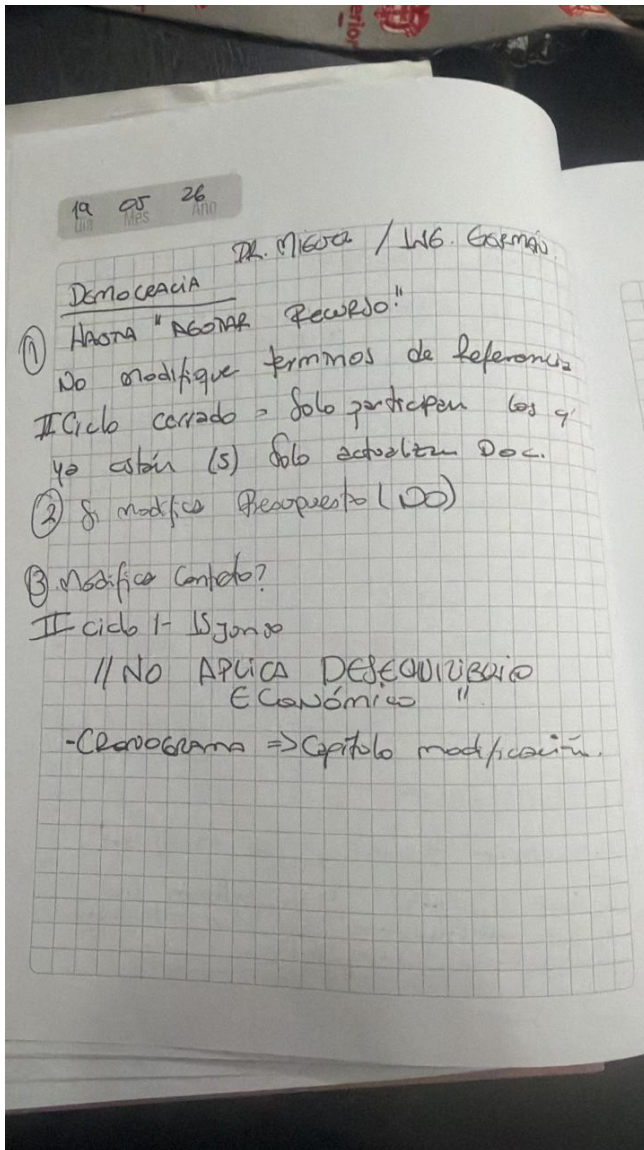 erior
19 05 26
Día Mes Año
DR. MIGUEL / ING. GERMÁN
DEMOCRACIA
① HASTA "AGOTAR RECURSO."
No modifique terminos de Referencia
II Ciclo cerrado = Solo participan los q'
ya están (5) Solo actualizan Doc.
② Si modifica Presupuesto (NO)
③ Modifica Contrato?
II ciclo 1- 15 junio
"NO APLICA DESEQUILIBRIO
ECONÓMICO"
-CRONOGRAMA => Capítulo modificación.